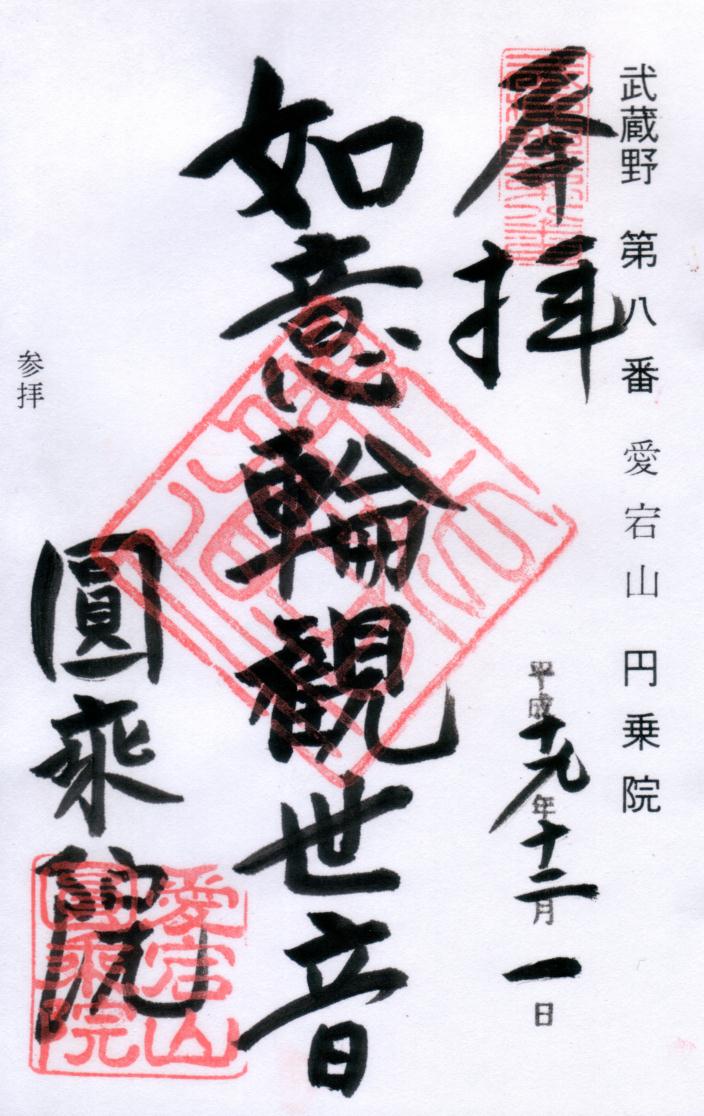 武蔵野 第八番 愛宕山 円乗院
奉拝
平成十九年十二月一日
如意輪觀世音
圓乘院
参拝
愛宕山
圓乘院